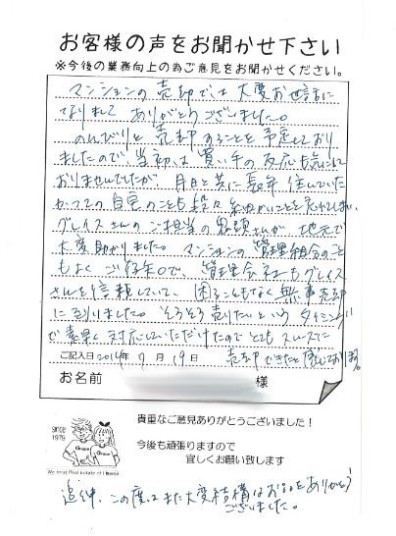 お客様の声をお聞かせ下さい
※今後の業務向上の為ご意見をお聞かせください。
マンションの売却では大変お世話に
なりまして ありがとうございました。
のんびりと売却することを予定しており
ましたので、当初は買い手の反応も気にして
おりませんでしたが、月日と共に長年住んでいた
かつての自宅のことも段々細かいことを忘れてしまい、
グレイスさんのご担当の さんが、地元で
大変助かりました。マンションの管理組合のこと
もよくご存知で、管理会社もグレイス
さんを信頼していて、困ることもなく無事売却
に到りました。"そろそろ売りたい"というタイミング
で素早く対応していただけたのでとてもスムーズに
ご記入日2014年7月19日 売却できたと感じております。
お名前 様
since
1979
Grace
Grace
We treat Real estate of Heart
貴重なご意見ありがとうございました！
今後も頑張りますので
宜しくお願い致します
追伸、この度はまた大変結構なお品をありがとう
ございました。